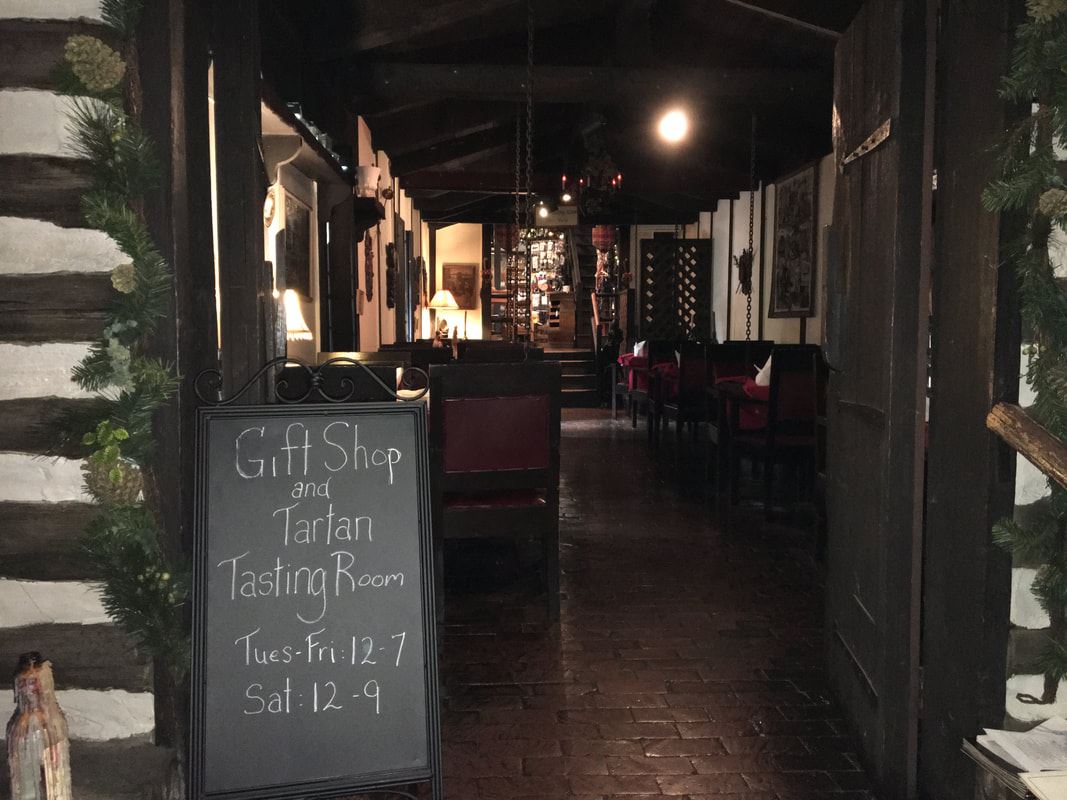 Gift Shop
and
Tartan
Tasting Room
Tues-Fri: 12-7
Sat: 12-9